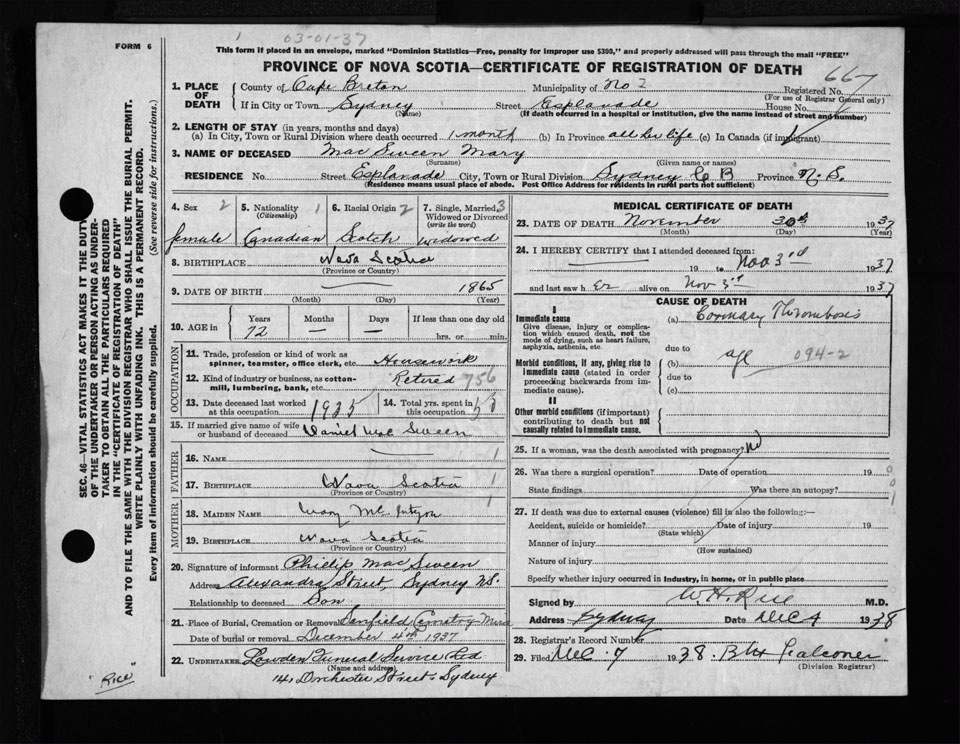 1 03-01-37
FORM 6
This form if placed in an envelope, marked "Dominion Statistics—Free, penalty for improper use $300," and properly addressed will pass through the mail "FREE"
PROVINCE OF NOVA SCOTIA—CERTIFICATE OF REGISTRATION OF DEATH
667
1. PLACE OF DEATH County of Cape Breton Municipality of No 2 Registered No.
(For use of Registrar General only)
If in City or Town Sydney Street Esplanade House No.
(If death occurred in a hospital or institution, give the name instead of street and number)
2. LENGTH OF STAY (in years, months and days)
(a) In City, Town or Rural Division where death occurred 1 month (b) In Province all her life (c) In Canada (if immigrant)
3. NAME OF DECEASED Mac Sween Mary
(Surname) (Given name or names)
RESIDENCE No. Street Esplanade City, Town or Rural Division Sydney C B Province N. S.
(Residence means usual place of abode. Post Office Address for residents in rural parts not sufficient)
4. Sex 2 5. Nationality (Citizenship) 1 6. Racial Origin 2 7. Single, Married, Widowed or Divorced (write the word) 3
female Canadian Scotch Widowed
8. BIRTHPLACE Nova Scotia
(Province or Country)
9. DATE OF BIRTH 1865
(Month) (Day) (Year)
10. AGE in Years Months Days If less than one day old
72 — — hrs. or min.
OCCUPATION
11. Trade, profession or kind of work as spinner, teamster, office clerk, etc. Housework
12. Kind of industry or business, as cotton-mill, lumbering, bank, etc. Retired 756
13. Date deceased last worked at this occupation 1935 14. Total yrs. spent in this occupation
15. If married give name of wife or husband of deceased Daniel Mc Sween
FATHER
16. NAME 1
17. BIRTHPLACE Nova Scotia 1
(Province or Country)
MOTHER
18. MAIDEN NAME Mary Mc Intyre 1
19. BIRTHPLACE Nova Scotia
(Province or Country)
20. Signature of informant Phillip Mac Sween
Address Alexandra Street, Sydney N.S.
Relationship to deceased Son
21. Place of Burial, Cremation or Removal Cemetry Mira
Date of burial or removal December 4th 1937
22. UNDERTAKER Lowden Funeral Service Ltd
(Name and address)
141 Dorchester Street, Sydney
MEDICAL CERTIFICATE OF DEATH
23. DATE OF DEATH November 30th 1937
(Month) (Day) (Year)
24. I HEREBY CERTIFY that I attended deceased from:
19 to Nov 3rd 1937
and last saw her alive on Nov 3rd 1937
CAUSE OF DEATH
I
Immediate cause (a) Coronary Thrombosis
Give disease, injury or complication which caused death, not the mode of dying, such as heart failure, asphyxia, asthenia, etc.
due to age 094-2
Morbid conditions, if any, giving rise to immediate cause (stated in order proceeding backwards from immediate cause).
(b)
due to
(c)
II
Other morbid conditions (if important) contributing to death but not causally related to immediate cause.
25. If a woman, was the death associated with pregnancy? No
26. Was there a surgical operation? Date of operation 19 0
State findings Was there an autopsy? 0
1
27. If death was due to external causes (violence) fill in also the following:—
Accident, suicide or homicide? Date of injury 19
(State which)
Manner of injury
(How sustained)
Nature of injury
Specify whether injury occurred in industry, in home, or in public place
Signed by W.H. Rice M.D.
Address Sydney Date Dec 4 1938
28. Registrar's Record Number
29. Filed Dec. 7 1938 Falconer
(Division Registrar)
SEC. 46—VITAL STATISTICS ACT MAKES IT THE DUTY
OF THE UNDERTAKER OR PERSON ACTING AS UNDERTAKER TO OBTAIN ALL THE PARTICULARS REQUIRED
IN THE "CERTIFICATE OF REGISTRATION OF DEATH"
AND TO FILE THE SAME WITH THE DIVISION REGISTRAR WHO SHALL ISSUE THE BURIAL PERMIT.
WRITE PLAINLY WITH UNFADING INK. THIS IS A PERMANENT RECORD.
Every item of information should be carefully supplied. (See reverse side for instructions.)
Rice